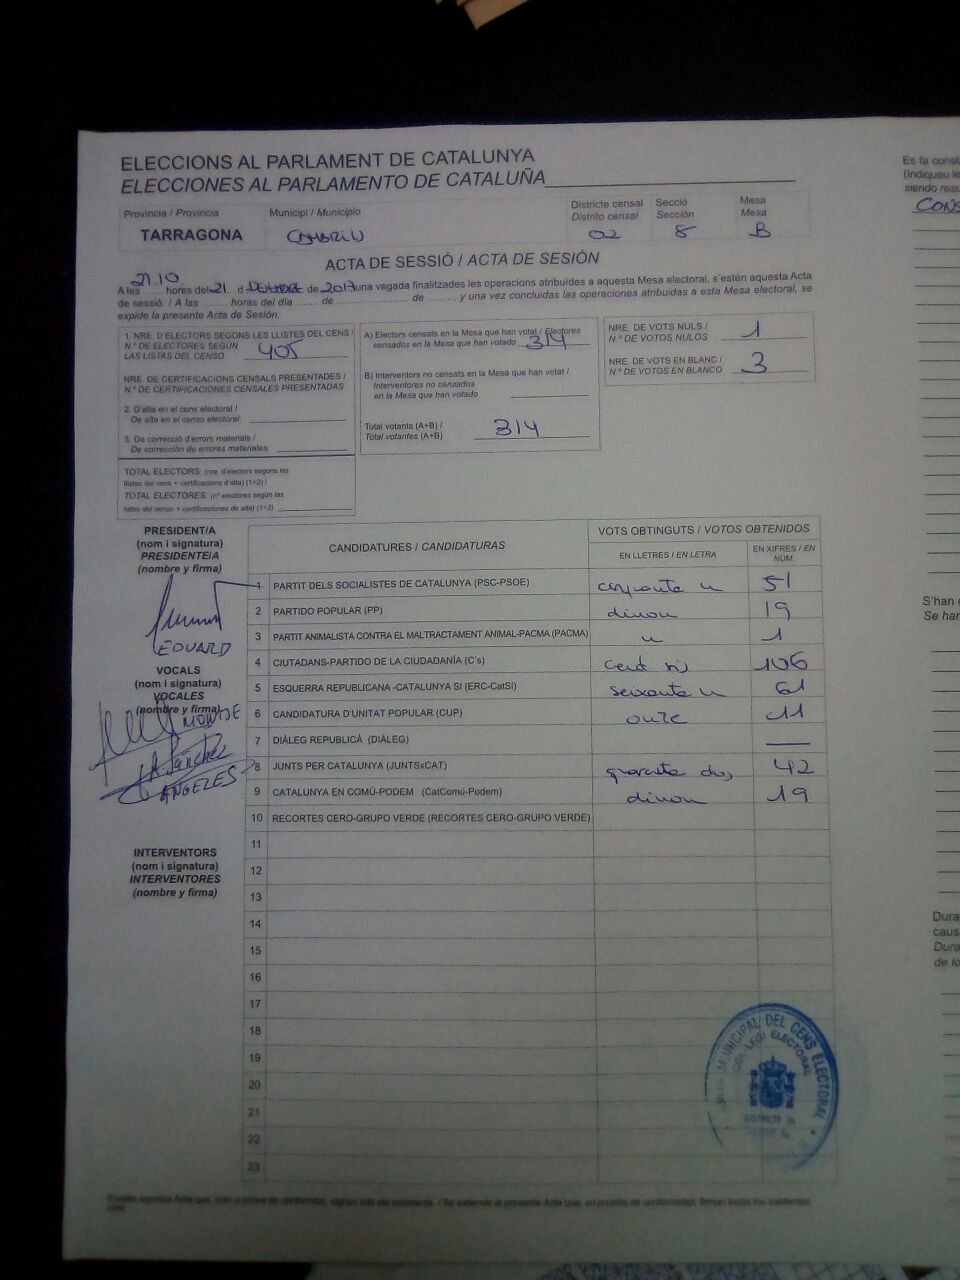 ELECCIONS AL PARLAMENT DE CATALUNYA
ELECCIONES AL PARLAMENTO DE CATALUÑA
Província / Provincia
TARRAGONA
Municipi / Municipio
CAMBRILS
Districte censal
Distrito censal
02
Secció
Sección
8
Mesa
Mesa
B
ACTA DE SESSIÓ / ACTA DE SESIÓN
21.10
A les ...... hores del 21 d ... de 2017 una vegada finalitzades les operacions atribuïdes a aquesta Mesa electoral, s'estén aquesta Acta
de sessió: / A las ........ horas del día ........ de ........................ de ........., y una vez concluidas las operaciones atribuidas a esta Mesa electoral, se
expide la presente Acta de Sesión:
1. NRE. D'ELECTORS SEGONS LES LLISTES DEL CENS /
N.º DE ELECTORES SEGÚN
LAS LISTAS DEL CENSO 405
NRE. DE CERTIFICACIONS CENSALS PRESENTADES /
N.º DE CERTIFICACIONES CENSALES PRESENTADAS
2. D'alta en el cens electoral /
De alta en el censo electoral:
3. De correcció d'errors materials /
De corrección de errores materiales:
TOTAL ELECTORS: (nre. d'electors segons les
llistes del cens + certificacions d'alta) (1+2) /
TOTAL ELECTORES: (nº electores según las
listas del censo + certificaciones de alta) (1+2)
A) Electors censats en la Mesa que han votat / Electores
censados en la Mesa que han votado 314
B) Interventors no censats en la Mesa que han votat /
Interventores no censados
en la Mesa que han votado
Total votants (A+B) /
Total votantes (A+B) 314
NRE. DE VOTS NULS /
N.º DE VOTOS NULOS 1
NRE. DE VOTS EN BLANC /
N.º DE VOTOS EN BLANCO 3
PRESIDENT/A
(nom i signatura)
PRESIDENTE/A
(nombre y firma)
EDUARD
VOCALS
(nom i signatura)
VOCALES
(nombre y firma)
MONTSE
A. Sánchez
ANGELES
INTERVENTORS
(nom i signatura)
INTERVENTORES
(nombre y firma)
CANDIDATURES / CANDIDATURAS
VOTS OBTINGUTS / VOTOS OBTENIDOS
EN LLETRES / EN LETRA
EN XIFRES / EN NÚM.
1 PARTIT DELS SOCIALISTES DE CATALUNYA (PSC-PSOE) cinquanta u 51
2 PARTIDO POPULAR (PP) dinou 19
3 PARTIT ANIMALISTA CONTRA EL MALTRACTAMENT ANIMAL-PACMA (PACMA) u 1
4 CIUTADANS-PARTIDO DE LA CIUDADANÍA (C's) cent sis 106
5 ESQUERRA REPUBLICANA -CATALUNYA SÍ (ERC-CatSí) seixanta u 61
6 CANDIDATURA D'UNITAT POPULAR (CUP) onze 11
7 DIÀLEG REPUBLICÀ (DIÀLEG) —
8 JUNTS PER CATALUNYA (JUNTSxCAT) quaranta dos 42
9 CATALUNYA EN COMÚ-PODEM (CatComú-Podem) dinou 19
10 RECORTES CERO-GRUPO VERDE (RECORTES CERO-GRUPO VERDE)
11
12
13
14
15
16
17
18
19
20
21
22
23
MUNICIPAL DEL CENS ELECTORAL
COL·LEGI ELECTORAL
DISTRICTE 2n
S'estén aquesta Acta que, com a prova de conformitat, signen tots els assistents. / Se extiende la presente Acta que, en prueba de conformidad, firman todos los asistentes
Es fa const
(Indiqueu le
siendo resu
CONS
S'han
Se har
Dura
caus
Dura
de lo